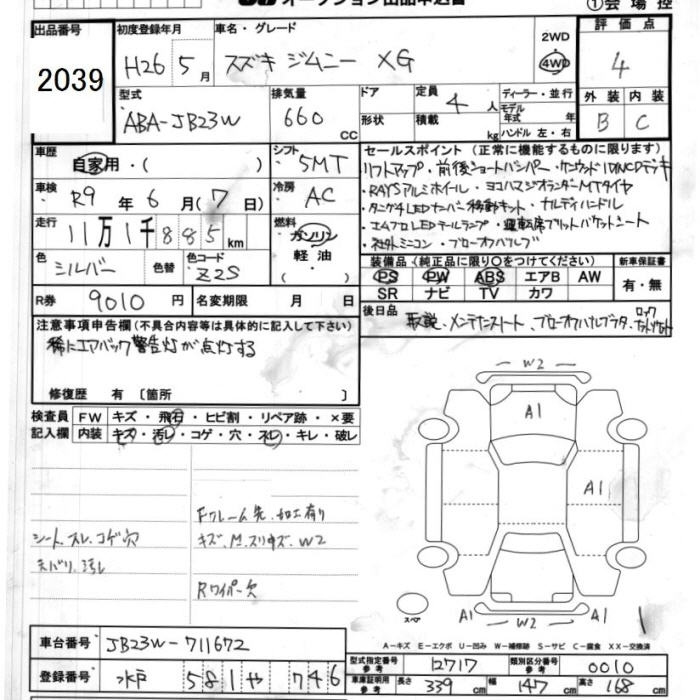 オークション出品申込書
①会場控
出品番号 初度登録年月 車名・グレード 2WD 評価点
2039 H26 5月 スズキ ジムニー XG 4WD 4
型式 排気量 ドア 定員 4人 ディーラー・並行 外装 内装
ABA-JB23W 660cc 形状 積載 kg モデル年式 年 ハンドル 左・右 B C
車歴 自家用・( ) シフト 5MT セールスポイント(正常に機能するものに限ります)
リフトアップ・前後ショートバンパー・ケンウッド1DINCDデッキ
車検 R9年6月(7日) 冷房 AC
・RAYSアルミホイール・ヨコハマジオランダーMTタイヤ
・タニグチLEDナンバー移動キット・ナルディハンドル
走行 11万1千885km 燃料 ガソリン 軽油 ( )
・エムプロLEDテールランプ・運転席ブリットバケットシート
・社外ミニコン・ブローオフバルブ
色 シルバー 色替 色コード Z2S
装備品(純正品に限り○をつけてください) 新車保証書
PS PW ABS エアB AW 有・無
SR ナビ TV カワ
R券 9010円 名変期限 月 日
後日品 取説、メンテナンスノート、ブローオフバルブアダプタ、ロックナットソケット
注意事項申告欄(不具合内容等は具体的に記入して下さい)
稀にエアバック警告灯が点灯する
修復歴 有〔箇所 〕
検査員 FW キズ・飛石・ヒビ割・リペア跡・×要
記入欄 内装 キズ・汚レ・コゲ・穴・スレ・キレ・破レ
W2
A1
A1
Fフレーム先、加工有り
シート、スレ、コゲ穴 キズ、M、スリキズ、W2
天バリ、汚レ
Rワイパー欠
スペア
A1 W2 A1
A-キズ E-エクボ U-凹み W-補修跡 S-サビ C-腐食 XX-交換済
車台番号 JB23W-711672
型式指定番号 参考 12717 類別区分番号 参考 0010
登録番号 水戸 581 や 746
車庫証明用 参考 長さ 339cm 幅 147cm 高さ 168cm